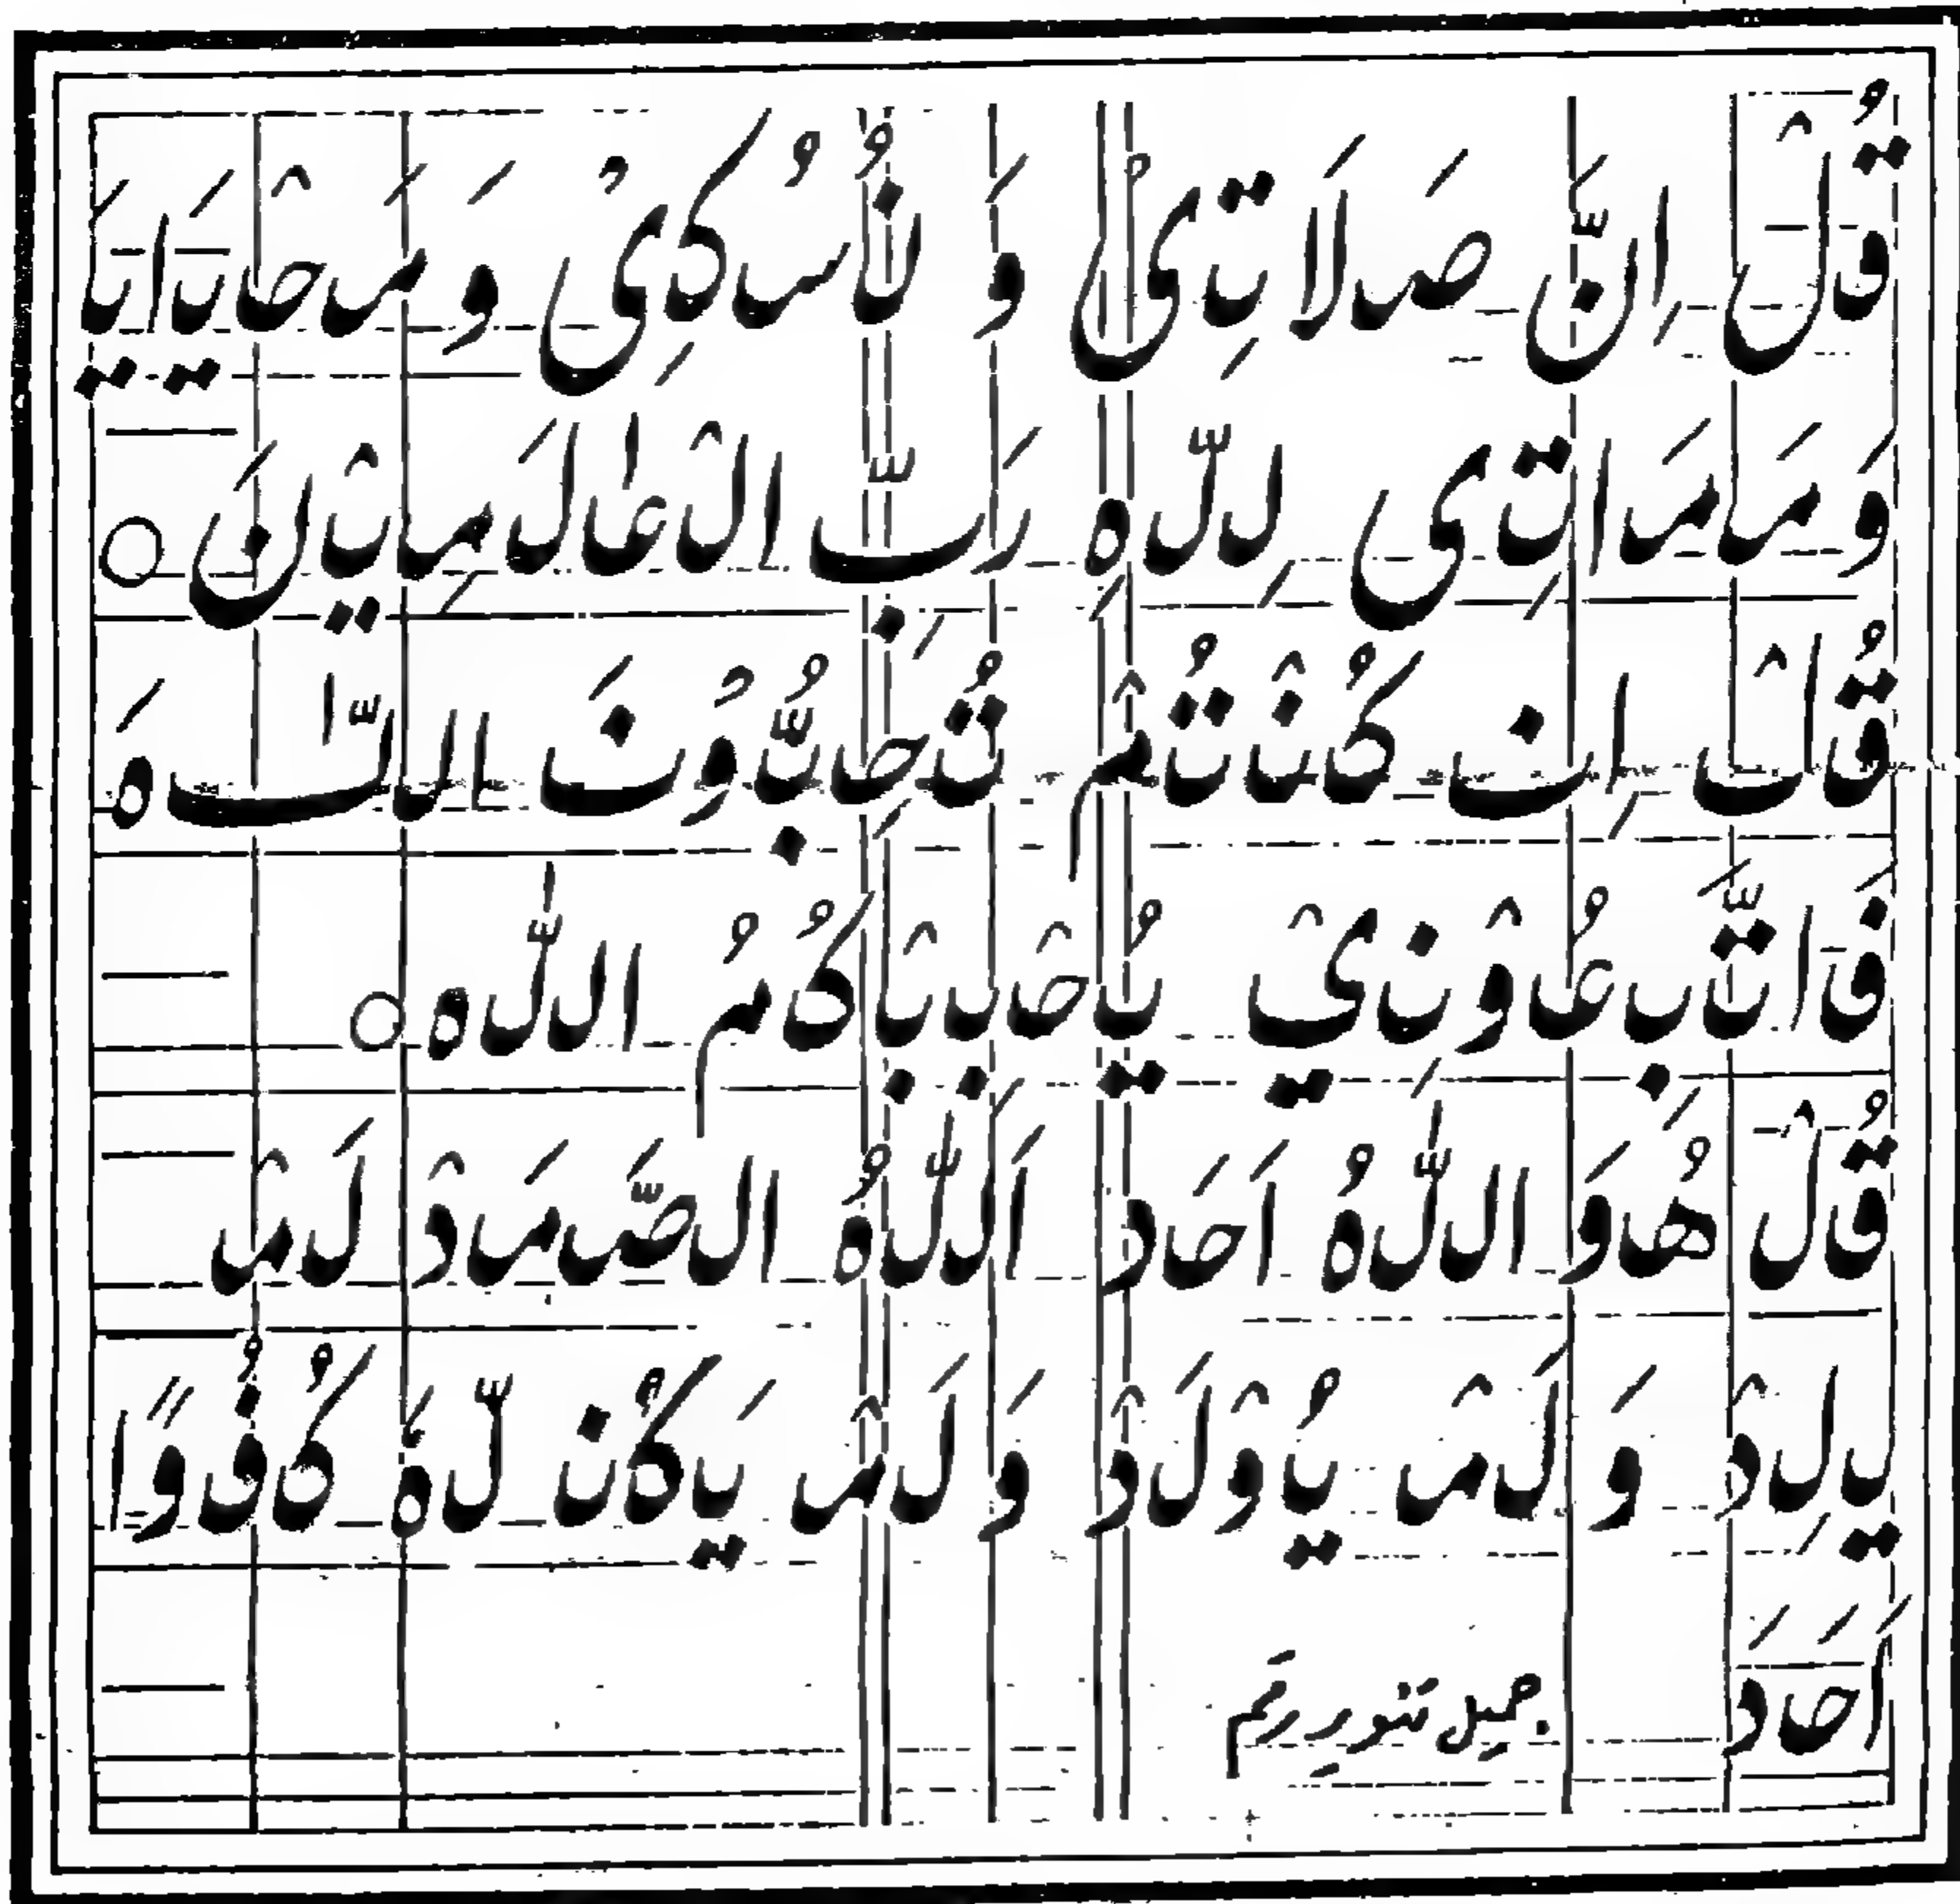 قُلْ اِنَّ صَلَاتِیْ وَ نُسُكِیْ وَ مَحْیَایَ
وَ مَمَاتِی لِلّٰهِ رَبِّ الْعٰلَمِیْنَ ○
قُلْ اِن كُنْتُمْ تُحِبُّوْنَ اللّٰهَ
فَاتَّبِعُوْنِیْ یُحْبِبْكُمُ اللّٰه ○
قُلْ هُوَ اللّٰهُ اَحَد اَللّٰهُ الصَّمَدْ لَمْ
یَلِدْ وَ لَمْ یُوْلَدْ وَ لَمْ یَكُن لَّهٗ كُفُوًا
اَحَدَ جمیل تنویر رقم